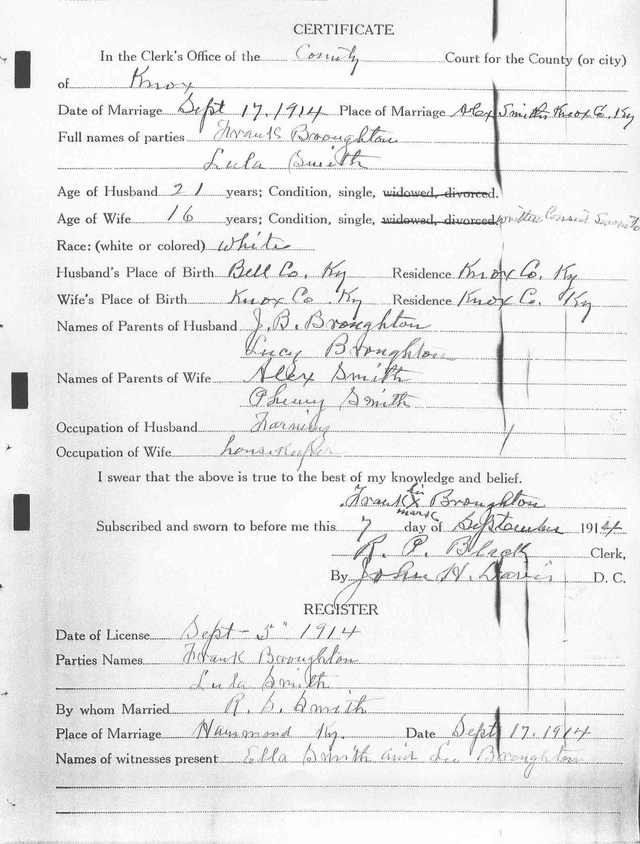 CERTIFICATE
In the Clerk's Office of the County Court for the County (or city)
of Knox
Date of Marriage Sept 17, 1914 Place of Marriage Alex Smith's Knox Co. Ky
Full names of parties Frank Broughton
Lula Smith
Age of Husband 21 years; Condition, single, widowed, divorced.
Age of Wife 16 years; Condition, single, widowed, divorced. written Consent
Race: (white or colored) white
Husband's Place of Birth Bell Co. Ky Residence Knox Co. Ky
Wife's Place of Birth Knox Co. Ky Residence Knox Co. Ky
Names of Parents of Husband J. B. Broughton
Lucy Broughton
Names of Parents of Wife Alex Smith
Pheny Smith
Occupation of Husband Farming
Occupation of Wife housekeeper
I swear that the above is true to the best of my knowledge and belief.
Frank his X mark Broughton
Subscribed and sworn to before me this 7 day of September 1914
R. P. Black Clerk,
By John H. Davis D. C.
REGISTER
Date of License Sept - 5" 1914
Parties Names Frank Broughton
Lula Smith
By whom Married R. S. Smith
Place of Marriage Hammond Ky. Date Sept 17. 1914
Names of witnesses present Ella Smith and Lee Broughton